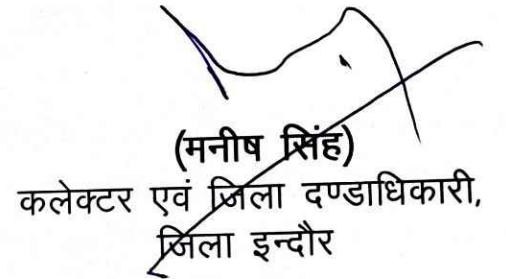 (मनीष सिंह)
कलेक्टर एवं जिला दण्डाधिकारी,
जिला इन्दौर